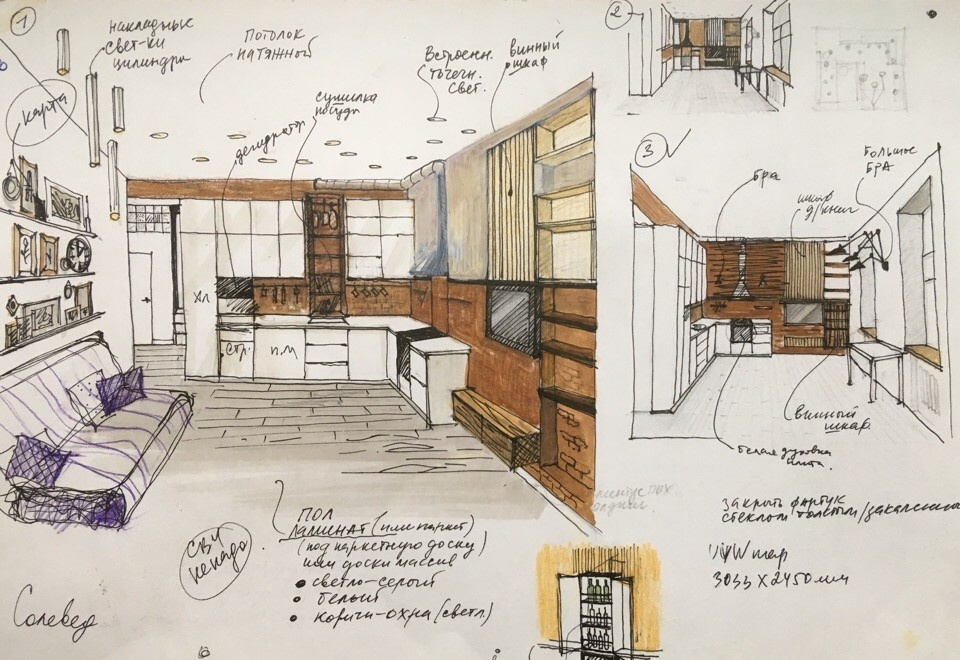 1
накладные
свет-ки
цилиндры
карта
потолок
натяжной
сушилка
посуды
дегидратор
Встроенн.
точечн.
свет.
винный
шкаф
хл
стр.
п.м
СВЧ
не надо
ПОЛ
ламинат (или паркет)
(под паркетную доску)
или доски массив
светло-серый
белый
коричн-охра (светл.)
Солевед
2
3
бра
Большое
БРА
шкаф
д/книг
винный
шкаф.
белая духовка
плита.
закрыть фартук
стеклом толстым/закаленным
3033 x 2450 мм